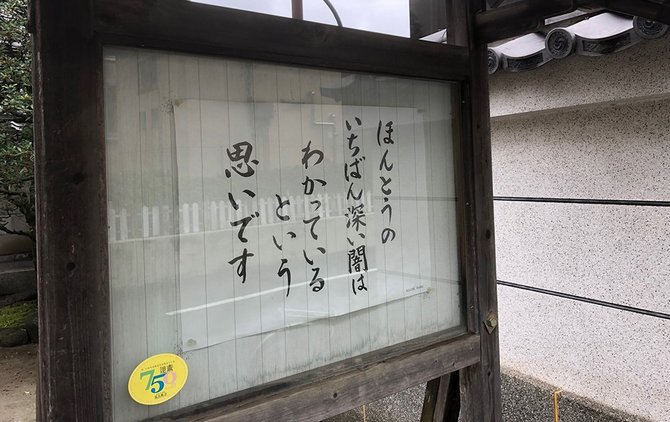 ほんとうの
いちばん深い闇は
わかっている
という
思いです
750